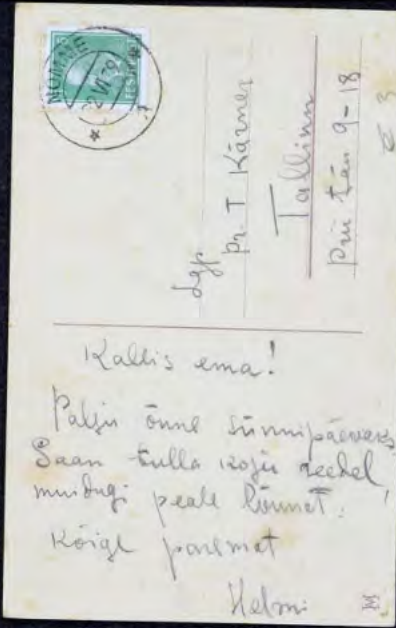 NÕMME
VI 39
EESTI
Lgp
Pr. T Kärner
Tallinn
Prii tän 9-18
Kallis ema!
Palju õnne sünnipäevaks
Saan tulla koju reedel
muidugi peale lõunat!
Kõige paremat
Helmi